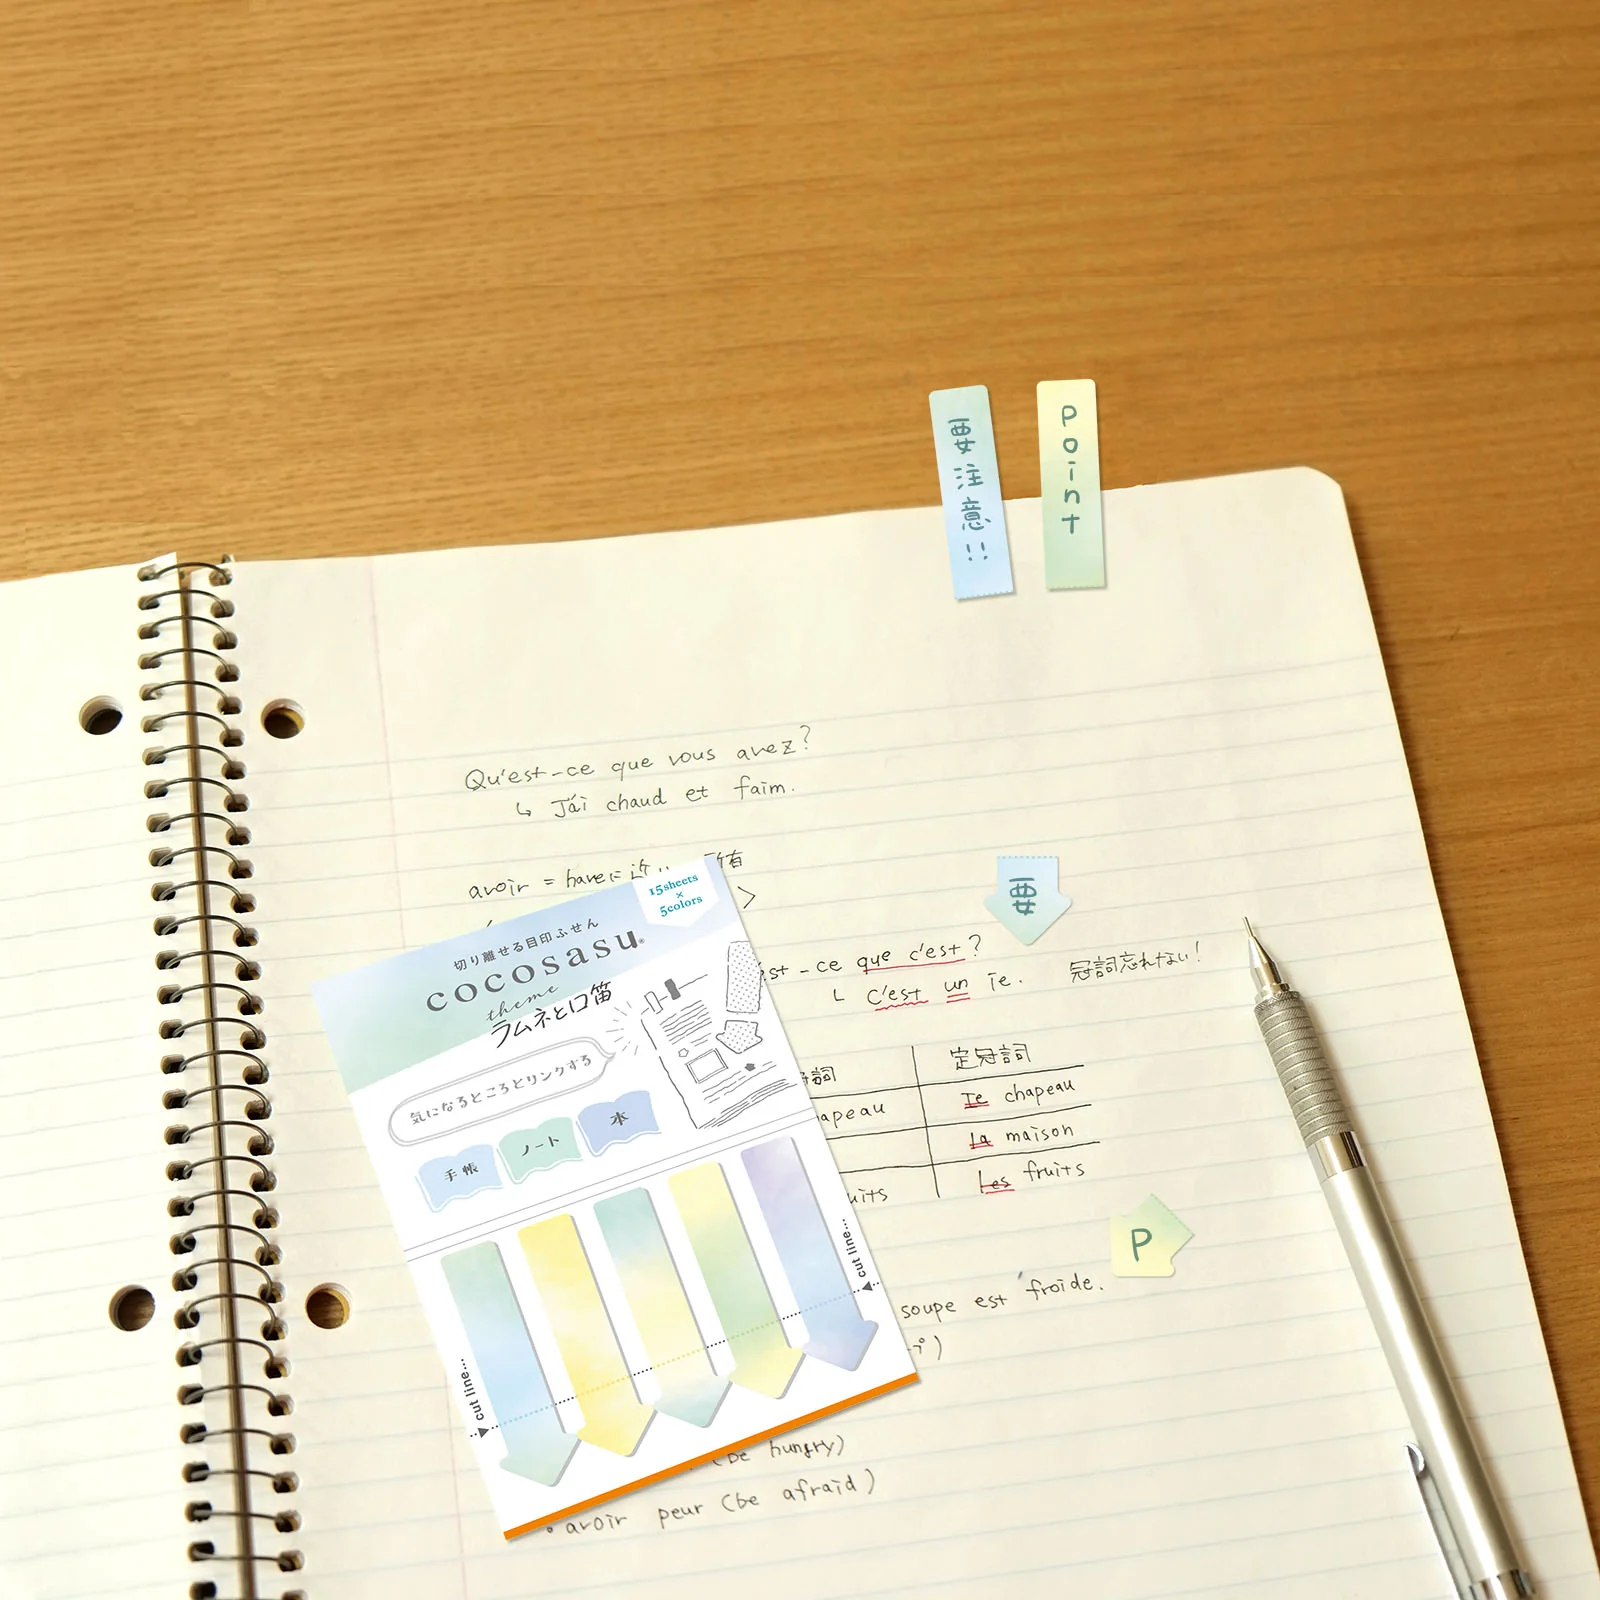 要注意!!
Point
Qu'est-ce que vous avez?
↳ J'ai chaud et faim.
avoir = haveに近い 所有
要
st-ce que c'est?
冠詞忘れない!
└ C'est un ie.
詞
定冠詞
apeau
Ie chapeau
la maison
uits
les fruits
P
soupe est froide.
(be hungry)
• avoir peur (be afraid)
15sheets
×
5colors
切り離せる目印ふせん
cocosasu®
theme
ラムネと口笛
気になるところとリンクする
手帳
ノート
本
cut line...
cut line...